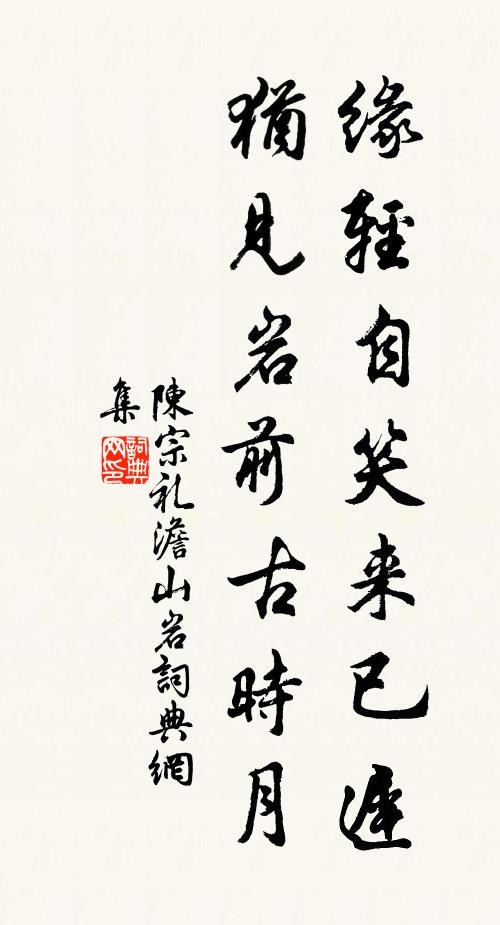 緣輕自笑来已遲
猶見岩前古時月
陳宗礼澹山岩詞典網
集
詞典網印